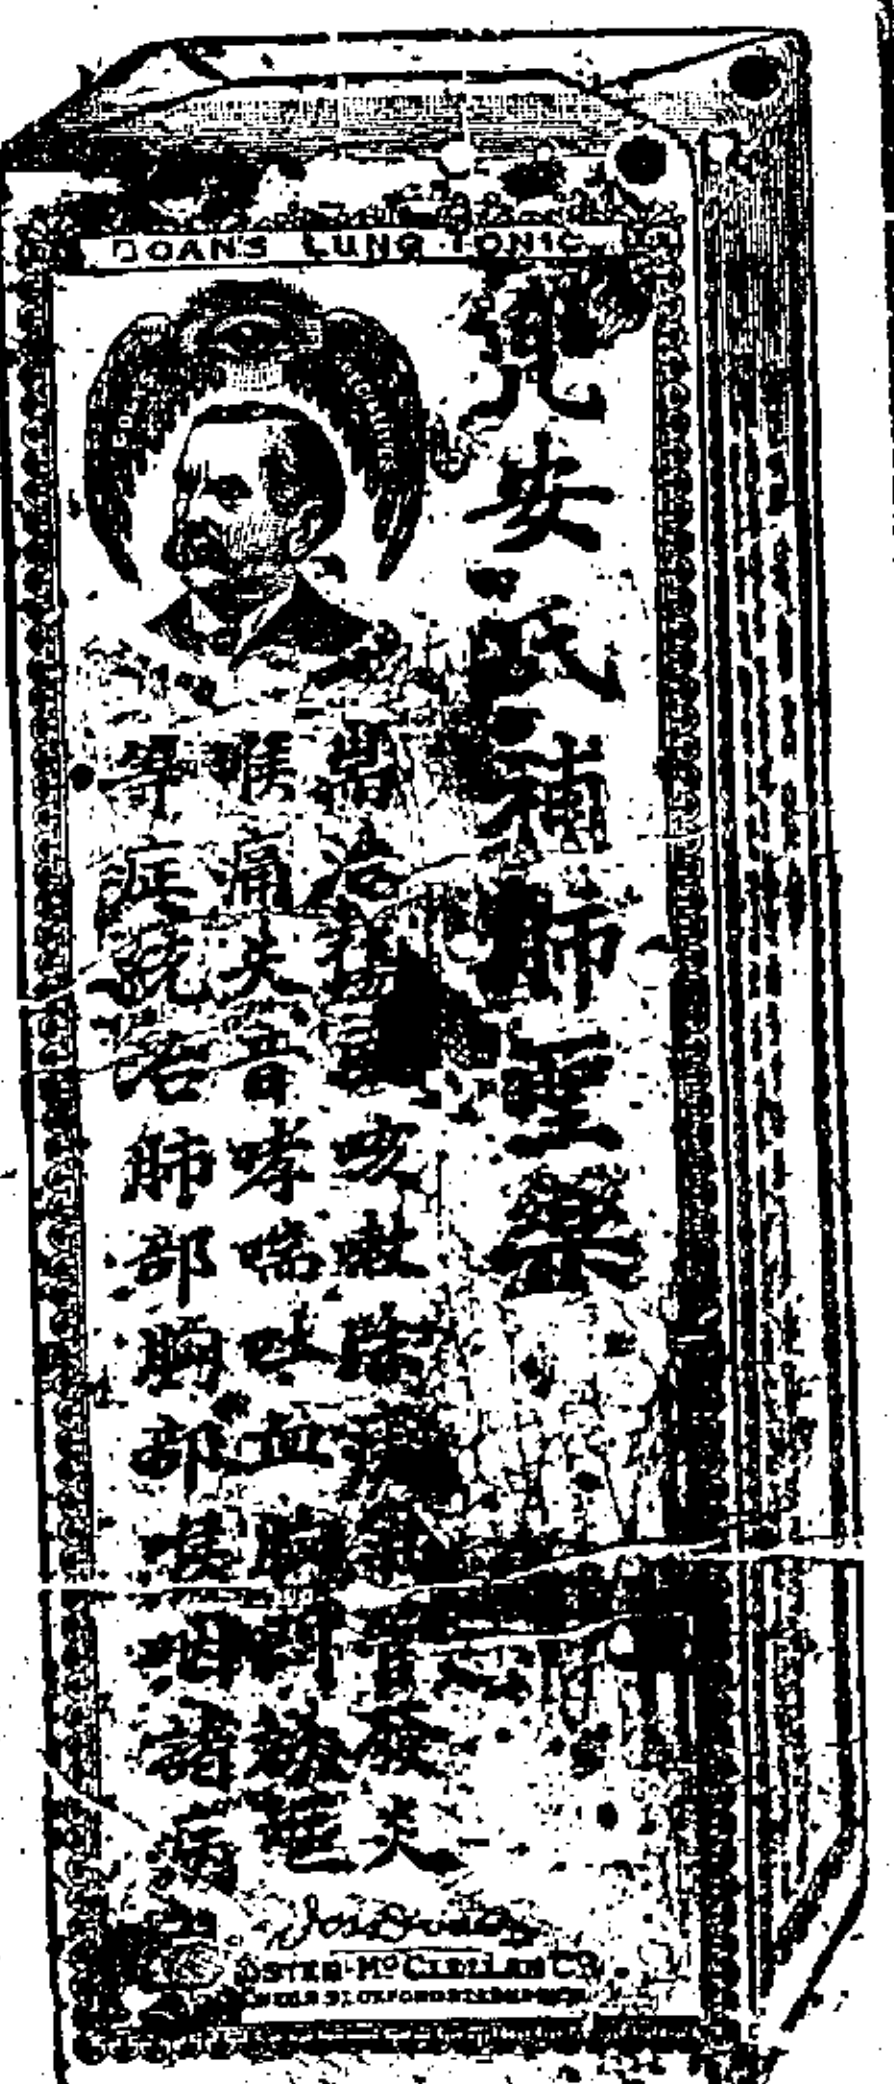 DOAN'S LUNG TONIC
兜安氏補肺聖藥
耑治傷風咳嗽 氣管發炎
喉痛失音哮喘吐血胸
等症統治肺部胸部喉咽諸病
FOSTER-McCLELLAN CO.